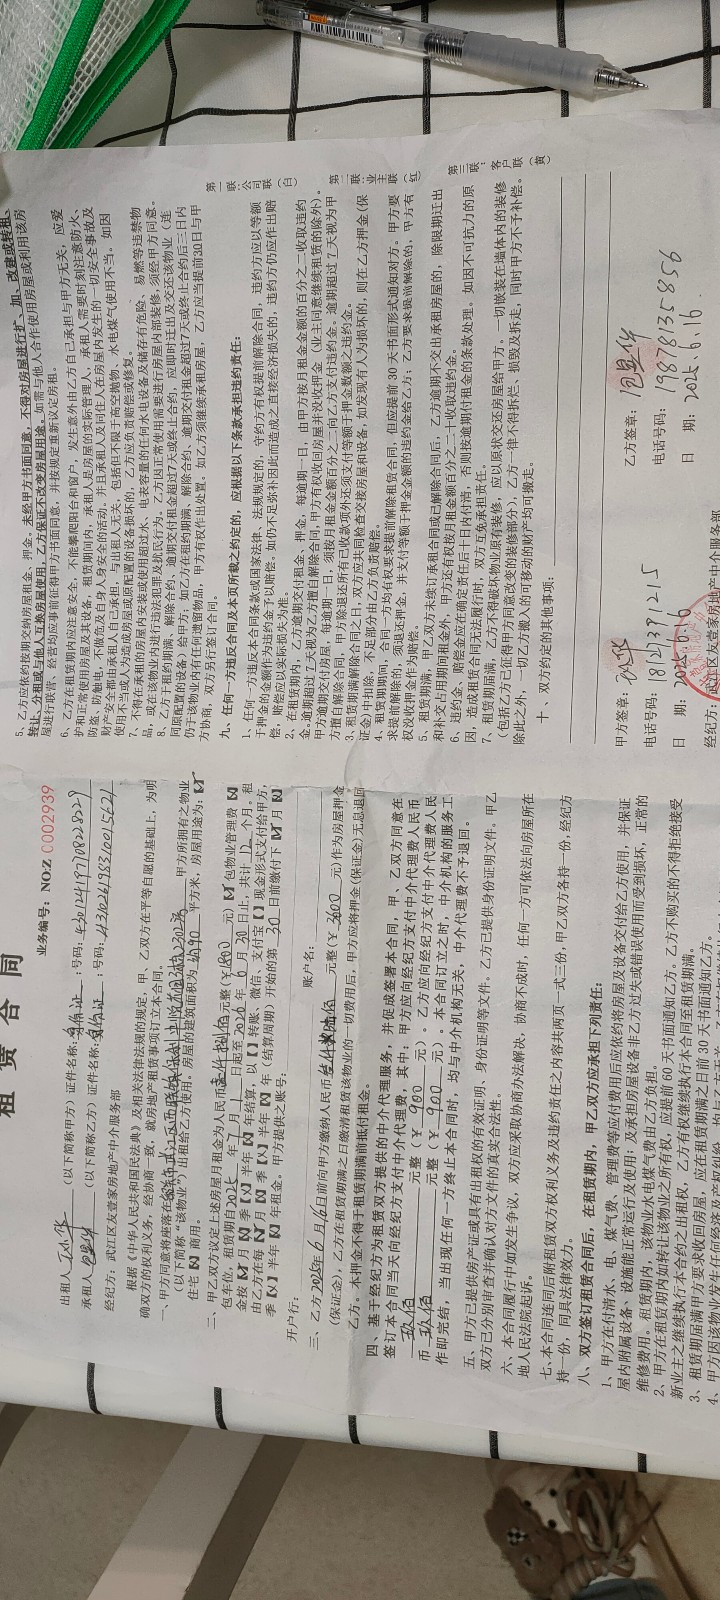 租 赁 合 同
业务编号：NO:Z C002939
出租人 （以下简称甲方）证件名称：身份证 ；号码：
承租人 （以下简称乙方）证件名称：身份证 ；号码：
经纪方：武江区友壹家房地产中介服务部
根据《中华人民共和国民法典》及相关法律法规的规定，甲、乙双方在平等自愿的基础上，为明
确双方的权利义务，经协商一致，就房地产租赁事项订立本合同。
一、甲方同意将座落在 甲方所拥有之物业
（以下简称“该物业”）出租给乙方使用。房屋的建筑面积为 平方米，房屋用途为：【√】
住宅【×】商用。
二、甲乙双方议定上述房屋月租金为人民币 元整（￥1800 元）【√】包物业管理费【×】
包车位，租赁期自2025 年 7 月 1 日起至2026 年 6 月 30 日止，共计 12 个月。租
金按【√】月【×】季【×】半年【×】年结算，以【 】转账、微信、支付宝【 】现金形式支付给甲方，
由乙方在每【√】月【×】季【×】半年【×】年（结算周期）开始的第 30 日前缴付下【√】月【×】
季【×】半年【×】年租金。甲方提供之账号：
开户行： 账户名：
三、乙方2025年 6 月16日前向甲方缴纳人民币 元整（￥ 3600 元）作为房屋押金
（保证金），乙方在租赁期满之日缴清租赁该物业的一切费用后，甲方应将押金（保证金）无息退回
乙方。本押金不得于租赁期满前抵付租金。
四、基于经纪方为租赁双方提供的中介代理服务，并促成签署本合同，甲、乙双方同意在
签订本合同当天向经纪方支付中介代理费，其中：甲方应向经纪方支付中介代理费人民币
玖佰 元整（￥ 900 元）。乙方应向经纪方支付中介代理费人民
币 玖佰 元整（￥ 900 元）。本合同订立之时，中介机构的服务工
作即完结，当出现任何一方终止本合同时，均与中介机构无关，中介代理费不予退回。
五、甲方已提供房产证或具有出租权的有效证明、身份证明等文件。乙方已提供身份证明文件。甲乙
双方已分别审查并确认对方文件的真实合法性。
六、本合同履行中如发生争议，双方应采取协商办法解决，协商不成时，任何一方可依法向房屋所在
地人民法院起诉。
七、本合同连同后附租赁双方权利义务及违约责任之内容共两页一式三份，甲乙双方各持一份，经纪方
持一份，同具法律效力。
八、双方签订租赁合同后，在租赁期内，甲乙双方应承担下列责任：
1、甲方在付清水、电、煤气费、管理费等应付费用后应依约将房屋及设备交付给乙方使用，并保证
屋内附属设备、设施能正常运行及使用；及承担房屋设备非乙方过失或错误使用而受到损坏，正常的
维修费用。租赁期内，该物业水电煤气费由乙方负担。
2、甲方在租赁期内如转让该物业之所有权，应提前 60 天书面通知乙方。乙方不购买的不得拒绝接受
新业主之继续执行本合约之出租权，乙方有权继续执行本合同至租赁期满。
3、租赁期届满甲方要求收回房屋，应在租赁期满之日前 30 天书面通知乙方。
5、乙方应依约按期交纳房屋租金、押金。未经甲方书面同意，不得对房屋进行扩、加、改建或转租、
转让、分租或与他人互换房屋使用，乙方保证不改变房屋用途。如需与他人合作使用房屋或利用该房
屋进行联营、经营均应事前征得甲方书面同意，并按规定重新议定房租。
6、乙方在租赁期内应注意安全，不能攀爬阳台和窗户，发生意外由乙方自己承担与甲方无关，应爱
护和正常使用房屋及其设备，租赁期间内，承租人是房屋的实际管理人，承租人需要时刻注意防火、
防盗、防触电，不做危及自身人身安全的活动，并且承租人及同住人在房屋内发生的一切安全事故及
财产安全都由承租人自己承担，与出租人无关，包括但不限于高空抛物、水电煤气使用不当。如因
使用不当或人为造成房屋或原配置的设备损坏的，乙方应负责赔偿或修复。
7、不得在承租的房屋内安装或使用超过水、电表容量的任何水电设备及储存有危险、易燃等违禁物
品，或在该物业内进行违法犯罪及扰民行为。乙方因正常使用需要进行房屋内部装修，须经甲方同意。
8、乙方于租约期满、解除合约、逾期交付租金超过7天或终止合约，应即时迁出及交还该物业（连
同原配置的设备）给甲方；如乙方在租约期满、解除合约、逾期交付租金超过7天或终止合约后三日内
仍于该物业内有任何遗留物品，甲方有权作出处置。如乙方须继续承租房屋，乙方应当提前30日与甲
方协商，双方另行签订合同。
九、任何一方违反合同及本页所载之约定的，应根据以下条款承担违约责任：
1、任何一方违反本合同条款或国家法律、法规规定的，守约方有权提前解除合同，违约方应以等额
于押金的金额作为违约金予以赔偿。如仍不足弥补因此而造成之直接经济损失的，违约方仍应作出赔
偿，赔偿应以实际损失为准。
2、在租赁期内，乙方逾期交付租金、押金，每逾期一日，由甲方按月租金金额的百分之二收取违约
金。逾期超过七天视为乙方擅自解除合同，甲方有权收回房屋并没收押金（业主同意继续租赁的除外）。
甲方逾期交付房屋，每逾期一日，须按月租金金额百分之二向乙方支付违约金。逾期超过 7 天视为甲
方擅自解除合同，甲方除退还所有已收款项外还须支付等额于押金数额之违约金。
3、租赁期满解除合同之日，双方应共同检查交接房屋和设备，如发现有人为损坏的，则在乙方押金（保
证金）中扣除，不足部分由乙方负责赔偿。
4、租赁期期间，合同一方均有权要求提前解除租赁合同，但应提前 30 天书面形式通知对方。甲方要
求提前解除的，须退还押金，并支付等额于押金金额的违约金给乙方；乙方要求提前解除的，甲方有
权没收押金作为赔偿。
5、租赁期满，甲乙双方未续订承租合同或已解除合同后，乙方逾期不交出承租房屋的，除限期迁出
和补交占用期间租金外，甲方还有权按月租金额百分之二十收取违约金。
6、违约金、赔偿金应在确定责任后十日内付清，否则按逾期付租金的条款处理。如因不可抗力的原
因，造成租赁合同无法履行时，双方互免承担责任。
7、租赁期届满，乙方不得破坏物业原有装修，应以原状交还房屋给甲方。一切嵌装在墙体内的装修
（包括乙方已征得甲方同意改变的装修部分），乙方一律不得拆烂、损毁及拆走，同时甲方不予补偿。
除此之外，一切乙方搬入的可移动的财产均可搬走。
十、双方约定的其他事项：
甲方签章： 乙方签章：
电话号码：18124391215 电话号码：19878135856
日 期：2025.6.16 日 期：2025.6.16
经纪方：武江区友壹家房地产中介服务部
第一联：公司联（白）
第二联：业主联（红）
第三联：客户联（黄）